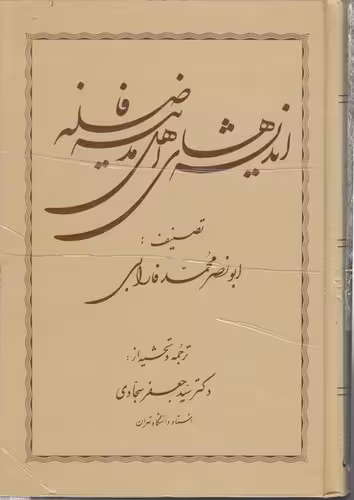 اندیشه‌های اهل مدینه فاضله
تصنیف :
ابونصر محمد فارابی
ترجمه و تحشیه از :
دکتر سید جعفر سجادی
استاد دانشگاه تهران